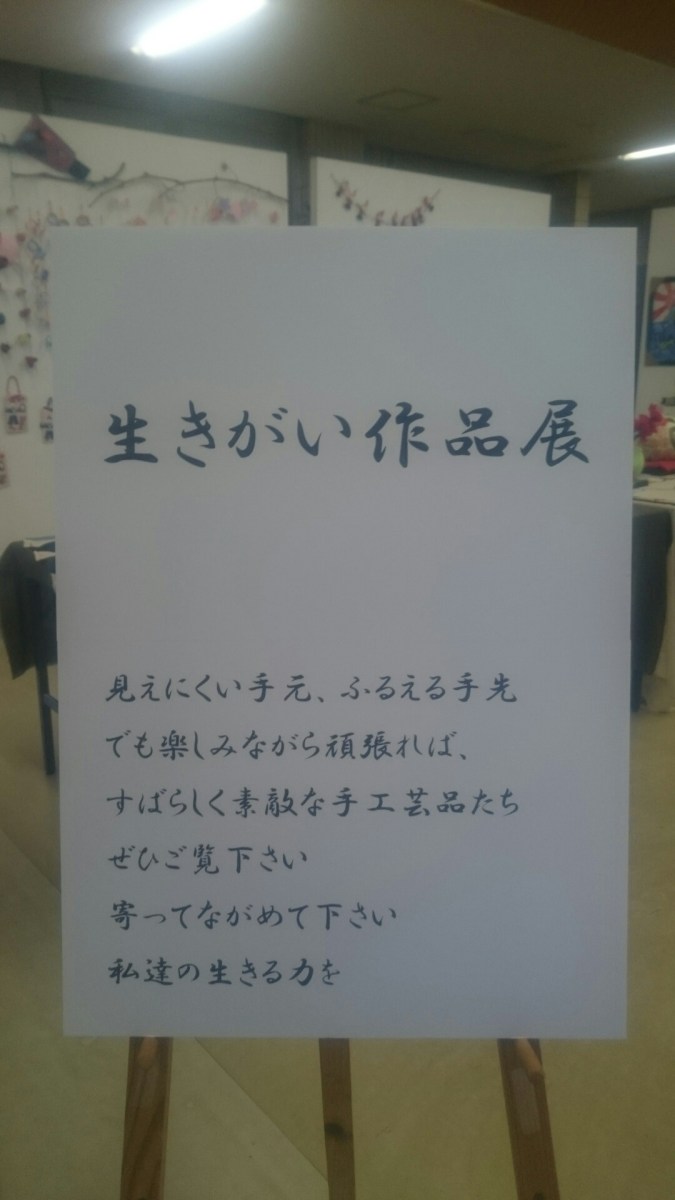 生きがい作品展
見えにくい手元、ふるえる手先
でも楽しみながら頑張れば、
すばらしく素敵な手工芸品たち
ぜひご覧下さい
寄ってながめて下さい
私達の生きる力を